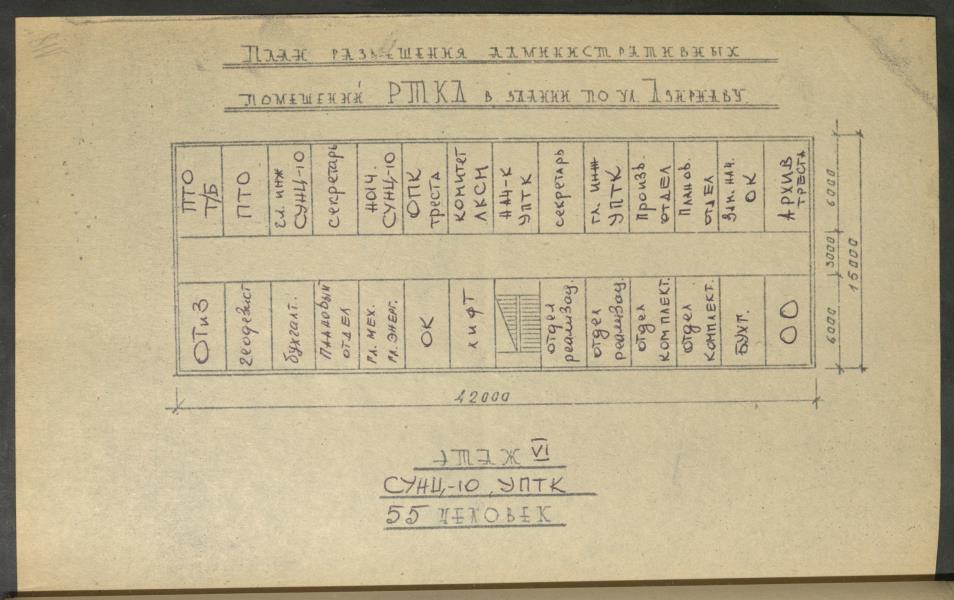 ПЛАН РАЗМЕЩЕНИЯ АДМИНИСТРАТИВНЫХ
ПОМЕЩЕНИЙ РТКА В ЗДАНИИ ПО УЛ.
ПТО
Т/Б
ПТО
гл. инж
СУНЦ-10
секретарь
нач.
СУНЦ-10
ОПК
треста
комитет
ЛКСМ
НАЧ-К
УПТК
секретарь
гл. инж
УПТК
Произв.
отдел
Планов.
отдел
Зам. нач.
ОК
АРХИВ
ТРЕСТА
ОТиЗ
геодезист
бухгалт.
Плановый
отдел
гл. мех.
гл. энерг.
ОК
лифт
отдел
реализац.
отдел
реализац.
отдел
комплект.
отдел
комплект.
БУХГ.
ОО
6000
3000
6000
15000
42000
ЭТАЖ VI
СУНЦ-10, УПТК
55 ЧЕЛОВЕК